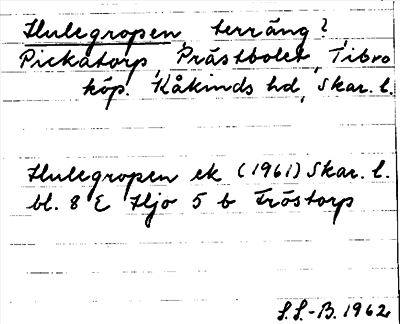 Hulegropen, terräng?,
Pickatorp, Prästbolet, Tibro
köp. Kåkinds hd, Skar. l.
Hulegropen ek (1961) Skar. l.
bl. 8 E Hjo 5 b Fröstorp
S.S.-B. 1962